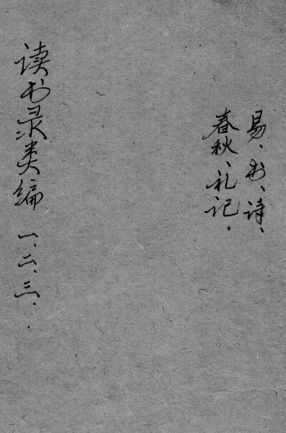 易、书、诗、
春秋、礼记.
读书录类编 一、二、三.